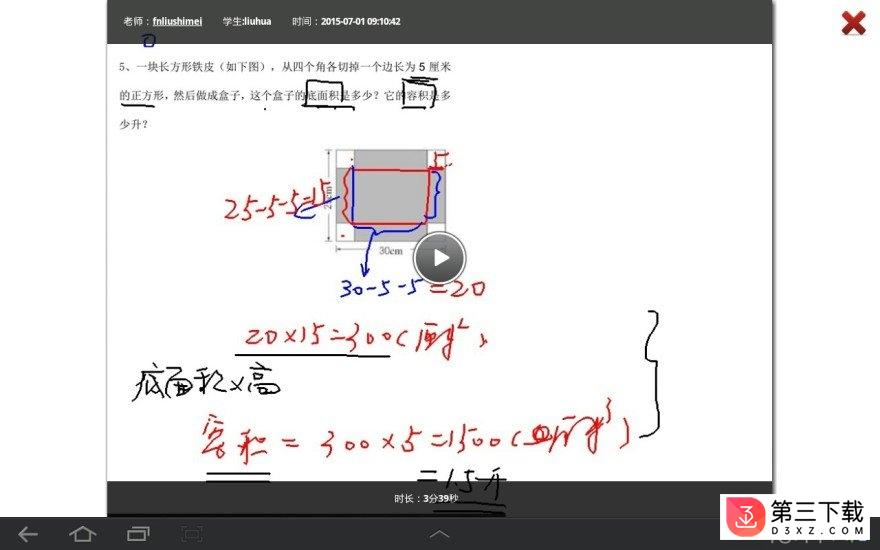 老师：fnliushimei 学生:liuhua 时间：2015-07-01 09:10:42
5、一块长方形铁皮（如下图），从四个角各切掉一个边长为 5 厘米
的正方形，然后做成盒子，这个盒子的底面积是多少？它的容积是多
少升？
5
25-5-5=15
30cm
30-5-5=20
20×15=300(厘米²)
底面积×高
容积=300×5=1500(厘米³)
=1.5升
时长：3分39秒
第三下载
D3XZ.COM